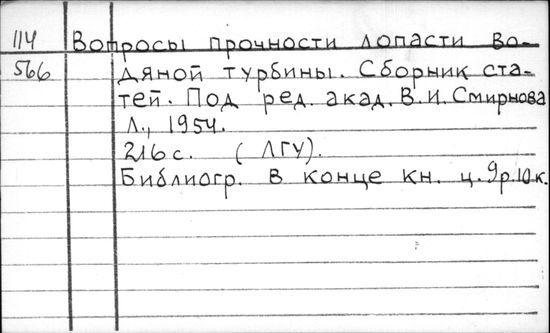 114 Вопросы прочности лопасти во-
566 дяной турбины. Сборник ста-
тей. Под ред. акад. В.И. Смирнова
Л., 1954.
216 с. (ЛГУ).
Библиогр. в конце кн. ц. 9 р. 10 к.